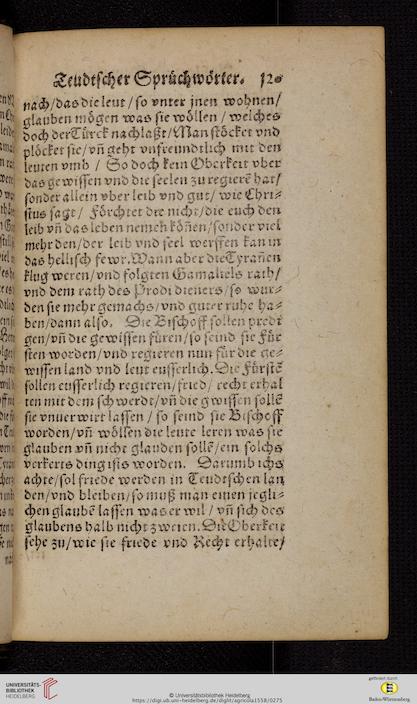 Teudtscher Sprüchwörter. 120
nach/das die leut/so vnter jnen wohnen/
glauben mögen was sie wöllen/welches
doch der Türck nachlaßt/Man stöcket vnd
plöcket sie/vñ geht vnfreundtlich mit den
leuten vmb/So doch kein Oberkeit vber
das gewissen vnd die seelen zu regierē hat/
sonder allein vber leib vnd gut/wie Chri=
stus sagt/Förchtet die nicht/die euch den
leib vñ das leben nemeh köñen/sonder viel
mehr den/der leib vnd seel werffen kan in
das hellisch fewr. Wann aber die Tyrañen
klug weren/vnd folgten Gamaliels rath/
vnd dem rath des Prodi dieners/so wur=
den sie mehr gemachs/vnd guter ruhe ha=
ben/dann also. Die Bischoff sollen predi
gen/vñ die gewissen füren/so seind sie Für
sten worden/vnd regieren nun für die ge=
wissen land vnd leut eusserlich. Die Fürstē
sollen eusserlich regieren/fried/recht erhal
ten mit dem schwerdt/vñ die gwissen sollē
sie vnuerwirt lassen/so seind sie Bischoff
worden/vñ wöllen die leute leren was sie
glauben vñ nicht glauben sollē/ein solchs
verkerts ding ists worden. Darumb ichs
achte/sol friede werden in Teudtschen lan
den/vnd bleiben/so muß man einen jegli=
chen glaubē lassen was er wil/vñ sich des
glaubens halb nicht zweien. Die Oberkeit
sehe zu/wie sie friede vnd Recht erhalte/
UNIVERSITÄTS-
BIBLIOTHEK
HEIDELBERG
© Universitätsbibliothek Heidelberg
https://digi.ub.uni-heidelberg.de/diglit/agricola1558/0275
gefördert durch
Baden-Württemberg